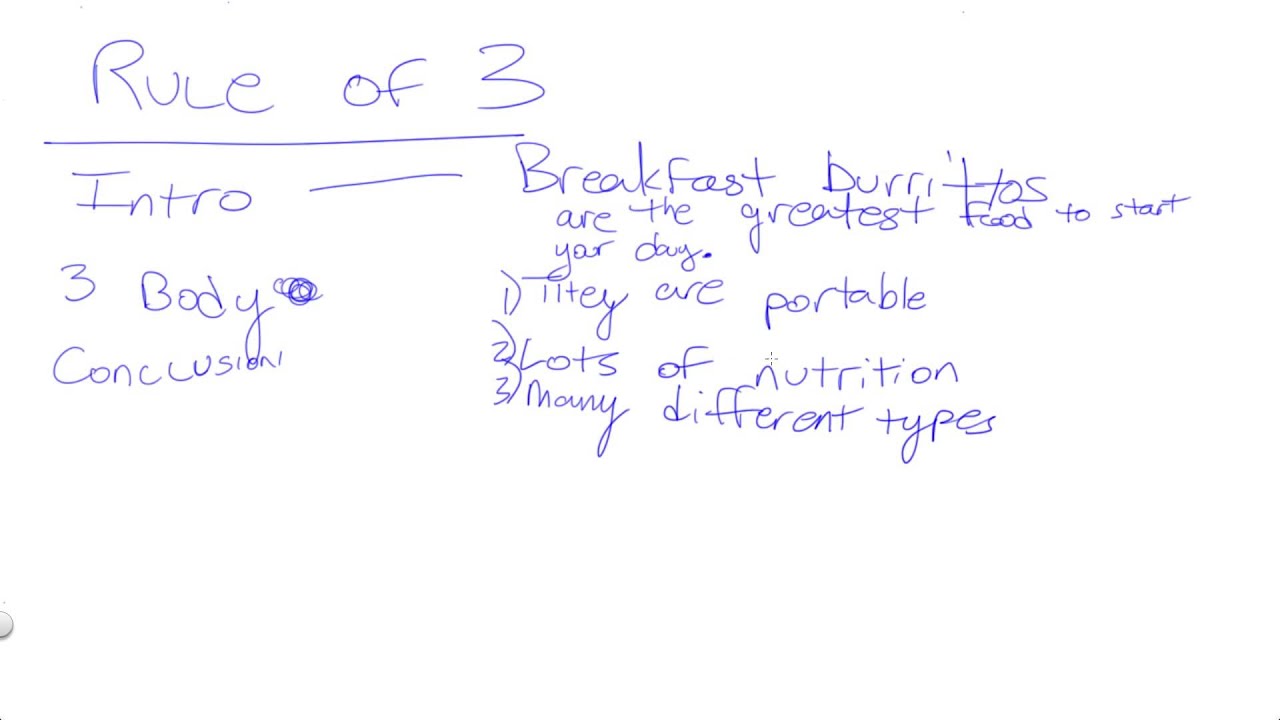 Rule of 3
Intro — Breakfast burritos
are the greatest food to start
your day.
3 Body
1) They are portable
2) Lots of nutrition
Conclusion
3) Many different types